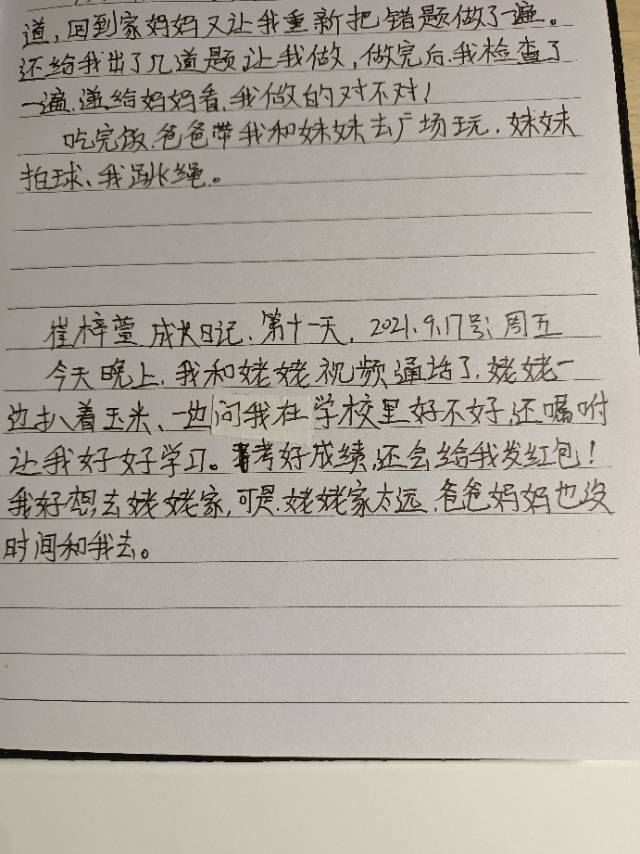 道,回到家妈妈又让我重新把错题做了一遍。
还给我出了几道题让我做,做完后.我检查了
一遍.递给妈妈看.我做的对不对!
吃完饭.爸爸带我和妹妹去广场玩.妹妹
拍球、我跳绳。
崔梓萱成长日记.第十一天.2021.9.17号:周五
今天晚上.我和姥姥视频通话了.姥姥一
边扒着玉米、一边问我在学校里好不好,还嘱咐
让我好好学习。考好成绩,还会给我发红包!
我好想去姥姥家,可是.姥姥家太远.爸爸妈妈也没
时间和我去。